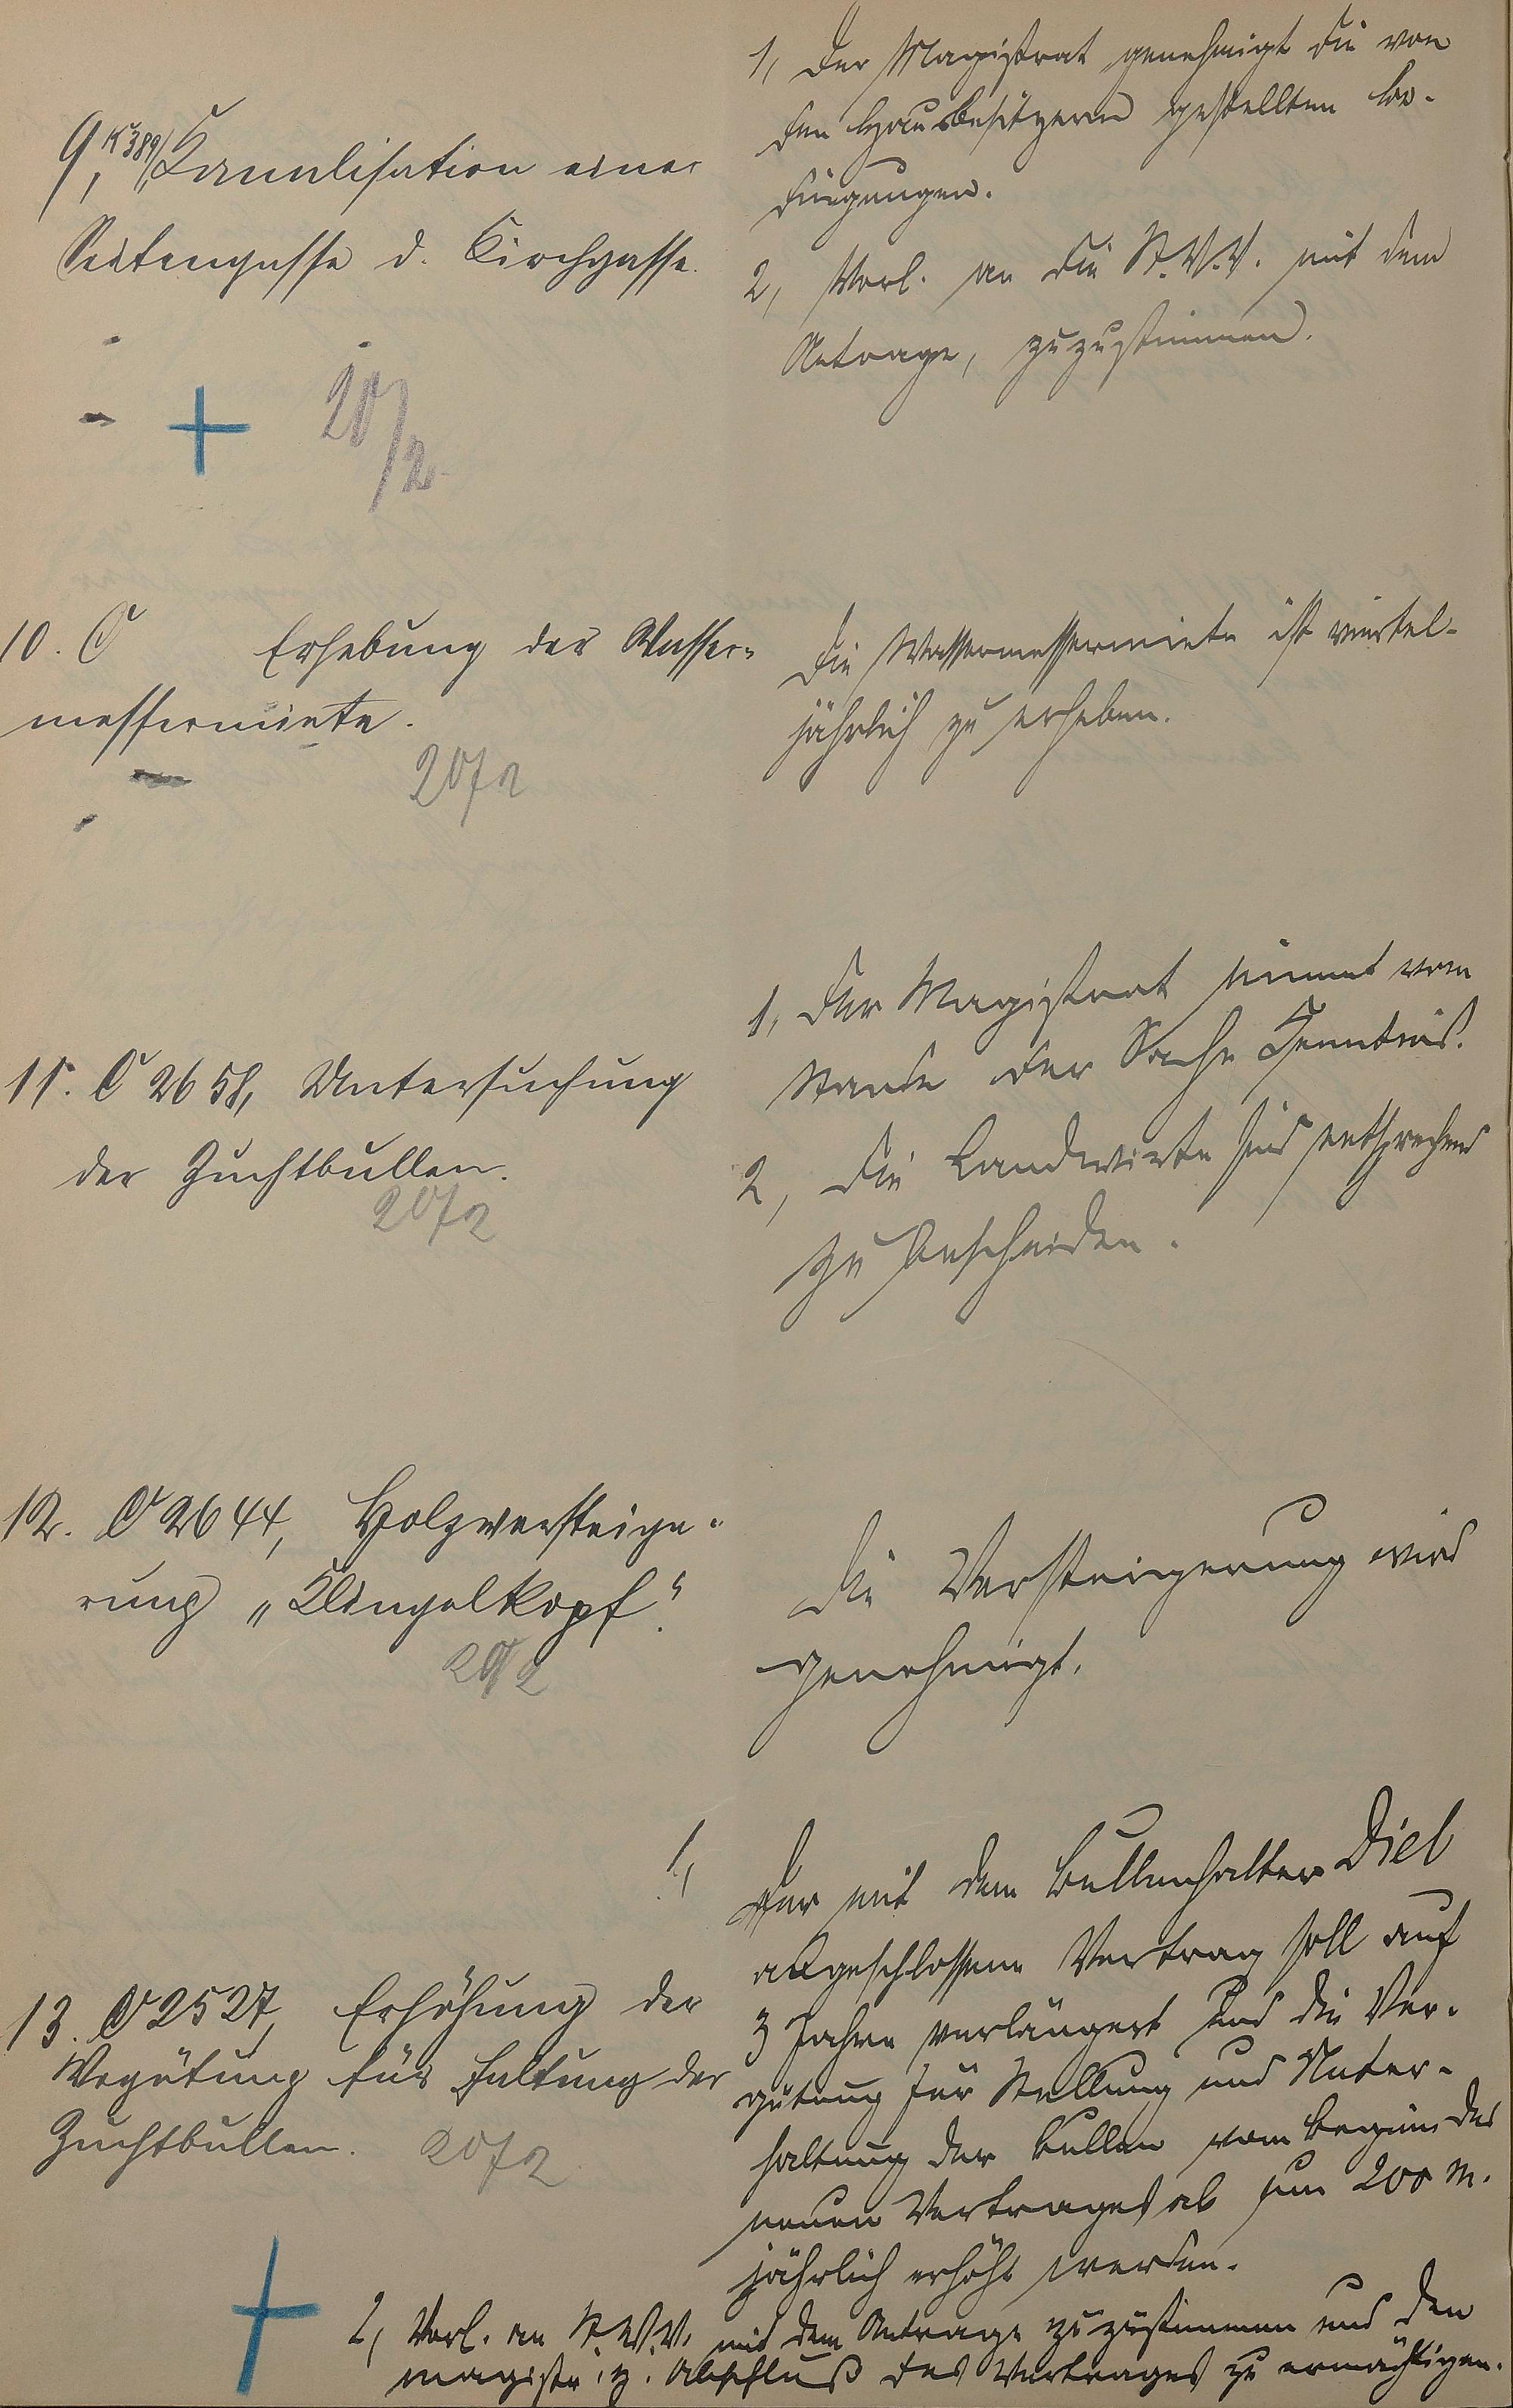 9, K 389, Kanalisation einer
Seitengasse d. Kirchgasse.
20/2
1, Der Magistrat genehmigt die von
den Hausbesitzern gestellten Be-
dingungen.
2, Vorl. an die St.V.V. mit dem
Antrage, zuzustimmen.
10. C Erhebung der Wasser-
messermiete.
20/2
Die Wassermessermiete ist viertel-
jährlich zu erheben.
11. C 2658, Untersuchung
der Zuchtbullen.
20/2
1, Der Magistrat nimmt vom
Stande der Sache Kenntnis.
2, Die Landwirte sind entsprechend
zu bescheiden.
12. C 2644, Holzversteige-
rung „Klingelkopf“.
20/2
Die Versteigerung wird
genehmigt.
13. C 2527, Erhöhung der
Vegütung für Haltung der
Zuchtbullen.
20/2
1, Der mit dem Bullenhalter Diel
abgeschlossene Vertrag soll auf
3 Jahre verlängert und die Ver-
gütung für Stellung und Unter-
haltung der Bullen vom Beginn des
neuen Vertrages ab um 200 M.
jährlich erhöht werden.
2, Vorl. an St.V.V. mit dem Antrage zuzustimmen und den
Magistr. z. Abschluß des Vertrages zu ermächtigen.